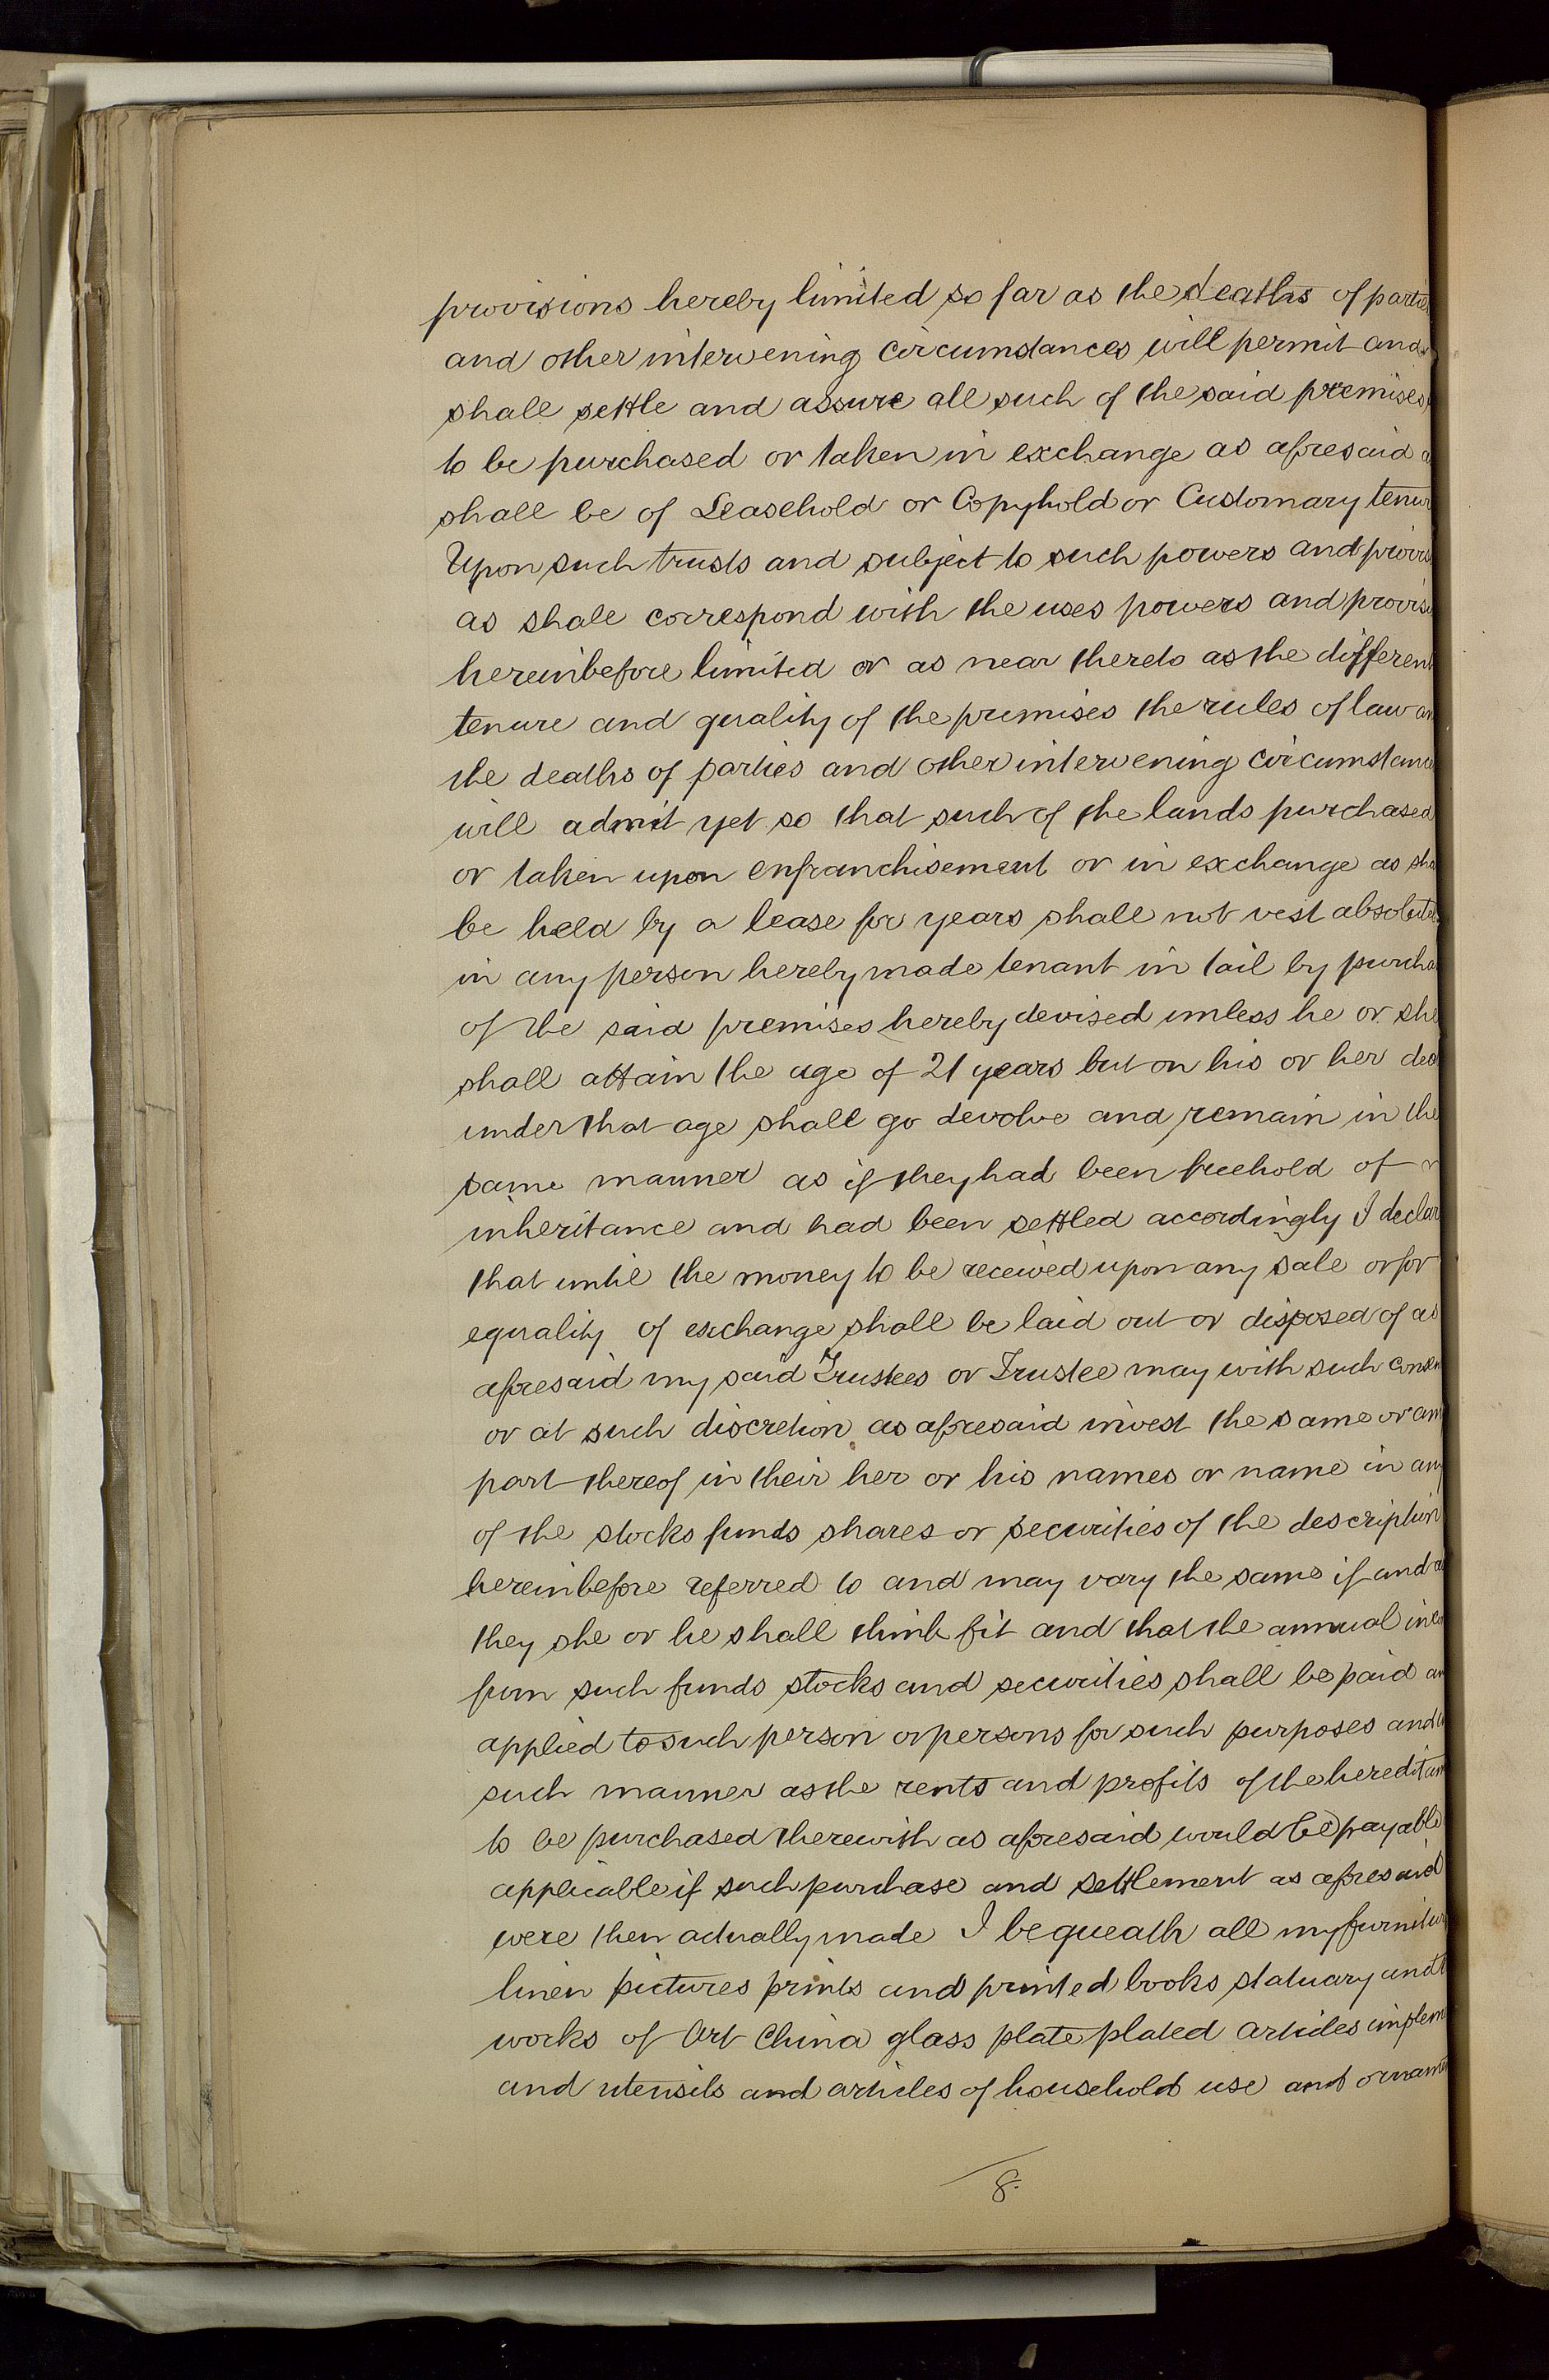 provisions hereby limited so far as the deaths of parties
and other intervening circumstances will permit and
shall settle and assure all such of the said premises
to be purchased or taken in exchange as aforesaid a
shall be of Leasehold or Copyhold or Customary tenur
Upon such trusts and subject to such powers and provis
as shall correspond with the uses powers and provisi
hereinbefore limited or as near thereto as the different
tenure and quality of the premises the rules of law an
the deaths of parties and other intervening circumstance
will admit yet so that such of the lands purchased
or taken upon enfranchisement or in exchange as sha
be held by a lease for years shall not vest absolutel
in any person hereby made tenant in tail by purcha
of the said premises hereby devised unless he or she
shall attain the age of 21 years but on his or her dea
under that age shall go devolve and remain in the
same manner as if they had been freehold of
inheritance and had been settled accordingly I declar
that until the money to be received upon any sale or for
equality of exchange shall be laid out or disposed of as
aforesaid my said Trustees or Trustee may with such consen
or at such discretion as aforesaid invest the same or any
part thereof in their her or his names or name in any
of the stocks funds shares or securities of the description
hereinbefore referred to and may vary the same if and as
they she or he shall think fit and that the annual inco
from such funds stocks and securities shall be paid an
applied to such person or persons for such purposes and
such manner as the rents and profits of the hereditam
to be purchased therewith as aforesaid would be payable
applicable if such purchase and settlement as aforesaid
were then actually made I bequeath all my furnitur
linen pictures prints and printed books statuary and
works of Art China glass plate plated articles implem
and utensils and articles of household use and ornamen
8.